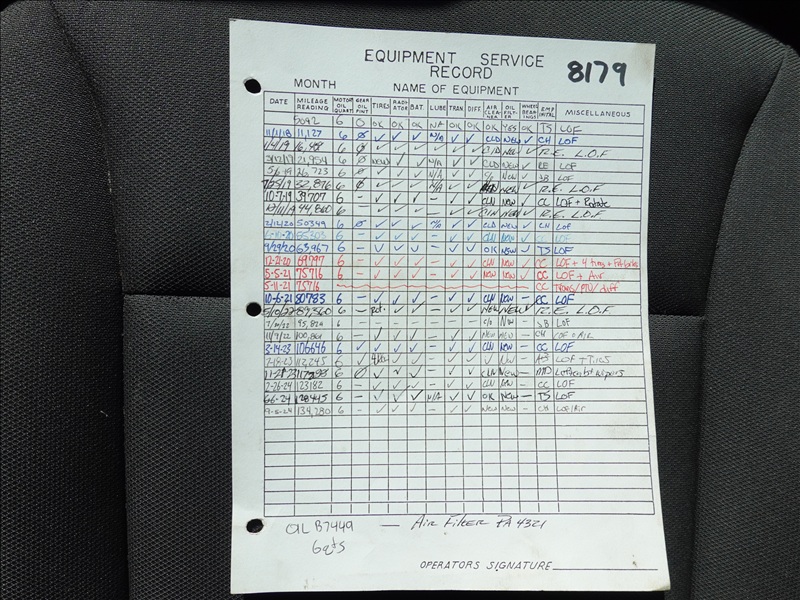 EQUIPMENT SERVICE
RECORD
8179
MONTH NAME OF EQUIPMENT
DATE MILEAGE READING MOTOR OIL QUART GEAR OIL PINT TIRES RADIATOR BAT. LUBE TRAN. DIFF. AIR CLEANER OIL FILTER WHEEL BEARINGS EMP INITIAL MISCELLANEOUS
5092 6 O OK OK OK NA OK OK OK YES OK TS LOF
11/1/18 11,127 6 Ø ✓ ✓ ✓ N/A ✓ ✓ CLD NEW ✓ CH LOF
1/4/19 6 Ø ✓ ✓ ✓ ✓ ✓ New ✓ R.E. L.O.F
3/12/19 21,954 6 Ø NEW ✓ ✓ N/A ✓ ✓ CLD NEW ✓ LOF
5/6/19 26,723 6 ✓ ✓ ✓ N/A ✓ ✓ NEW ✓ LOF
7/25/19 32,876 6 Ø ✓ ✓ ✓ N/A ✓ ✓ New ✓ R.E. L.O.F
10-7-19 39707 6 – ✓ ✓ ✓ – ✓ ✓ CLN NEW ✓ CC LOF + Rotate
44,860 6 – ✓ ✓ ✓ – ✓ ✓ CLN New ✓ R.E. L.O.F
2/12/20 50349 6 Ø ✓ ✓ ✓ N/A ✓ ✓ CLD NEW ✓ CH LOF
6 – ✓ ✓ ✓ – ✓ ✓ ✓ LOF
63967 6 – ✓ ✓ ✓ – ✓ ✓ OK NEW ✓ TS LOF
12-21-20 69797 6 – ✓ ✓ ✓ – ✓ ✓ CLN NEW ✓ LOF + 4 tires +
5-5-21 75716 6 – ✓ ✓ ✓ – ✓ ✓ NEW NEW ✓ CC LOF + Air
5-11-21 75716 CC Trans/PTU/diff
10-6-21 80783 6 – ✓ ✓ ✓ – ✓ ✓ CLN NEW – CC LOF
5/10/22 87,360 6 – Rot. ✓ ✓ – ✓ ✓ New New ✓ R.E. L.O.F
95,820 6 – ✓ ✓ ✓ – ✓ ✓ New – LOF
11/9/22 6 – ✓ ✓ ✓ – ✓ ✓ NEW NEW – CH LOF + AIR
3-14-23 106646 6 ✓ ✓ ✓ ✓ ✓ ✓ ✓ CLN NEW – CC LOF
112,245 6 – ✓ ✓ – ✓ ✓ ✓ New – LOF + Tires
6 Ø ✓ ✓ ✓ – ✓ ✓ CLN New – MD wipers
2-26-24 123182 6 – ✓ ✓ ✓ – ✓ ✓ CLN NEW – CC LOF
6-6-24 128445 6 – ✓ ✓ ✓ N/A ✓ ✓ OK NEW – TS LOF
9-5-24 134,280 6 – ✓ ✓ ✓ – ✓ ✓ NEW NEW – CH LOF/Air
OIL B7449 – Air Filter PA 4321
6qts
OPERATORS SIGNATURE